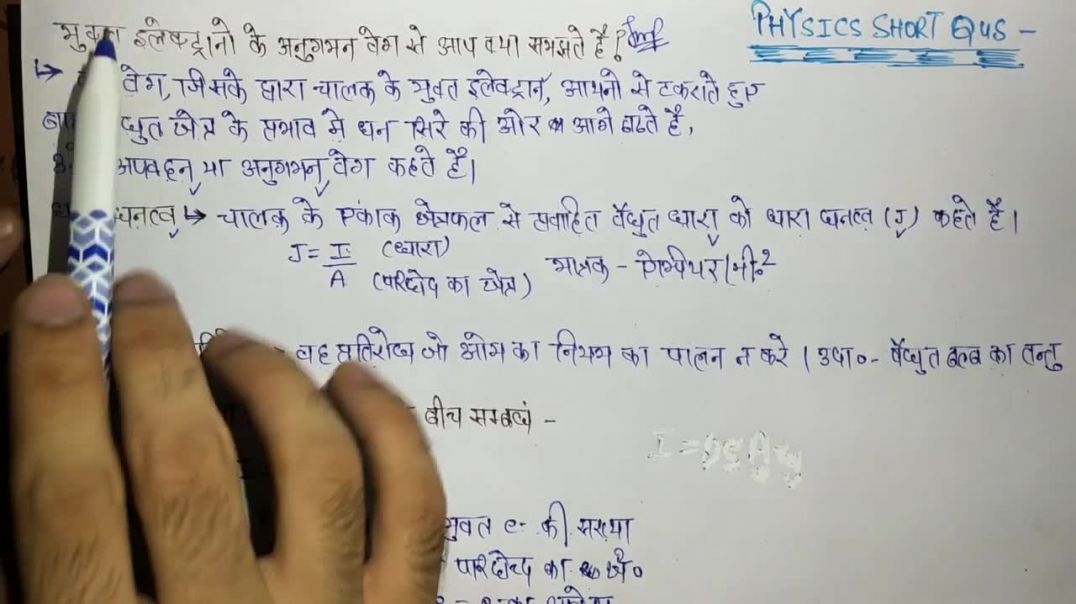 PHYSICS SHORT QUS -
मुक्त इलेक्ट्रानो के अनुगमन वेग से आप क्या समझते है? Imf
↳ वेग, जिसके द्वारा चालक के मुक्त इलेक्ट्रान, आयनो से टकराते हुए
द्युत क्षेत्र के प्रभाव मे धन सिरे की ओर आगे बढते है,
अपवहन या अनुगमन वेग कहते है।
घनत्व ↳ चालक के एकांक क्षेत्रफल से प्रवाहित वैद्युत धारा को धारा घनत्व (J) कहते है।
J = I (धारा)
A (परिच्छेद का क्षेत्र) मात्रक - ऐम्पियर/मी०²
- वह प्रतिरोध जो ओम का नियम का पालन न करे। उदा०- वैद्युत बल्ब का तन्तु
बीच सम्बधं -
मुक्त e- की संख्या
परिच्छेद का क्षे०